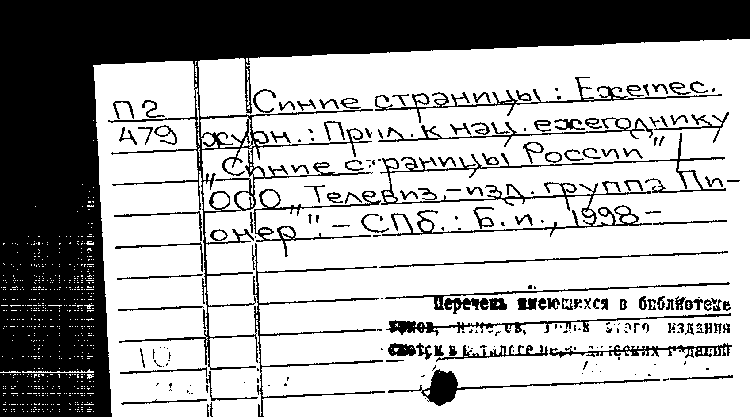 П2 Синие страницы : Ежемес.
479 журн. : Прил. к нац. ежегоднику
„Синие страницы России" /
ООО „Телевиз.-изд. группа Пи-
онер". - СПб. : Б.и., 1998 -
Перечень имеющихся в библиотеке
томов, номеров, годов этого издания
смотри в каталоге периодических изданий
10